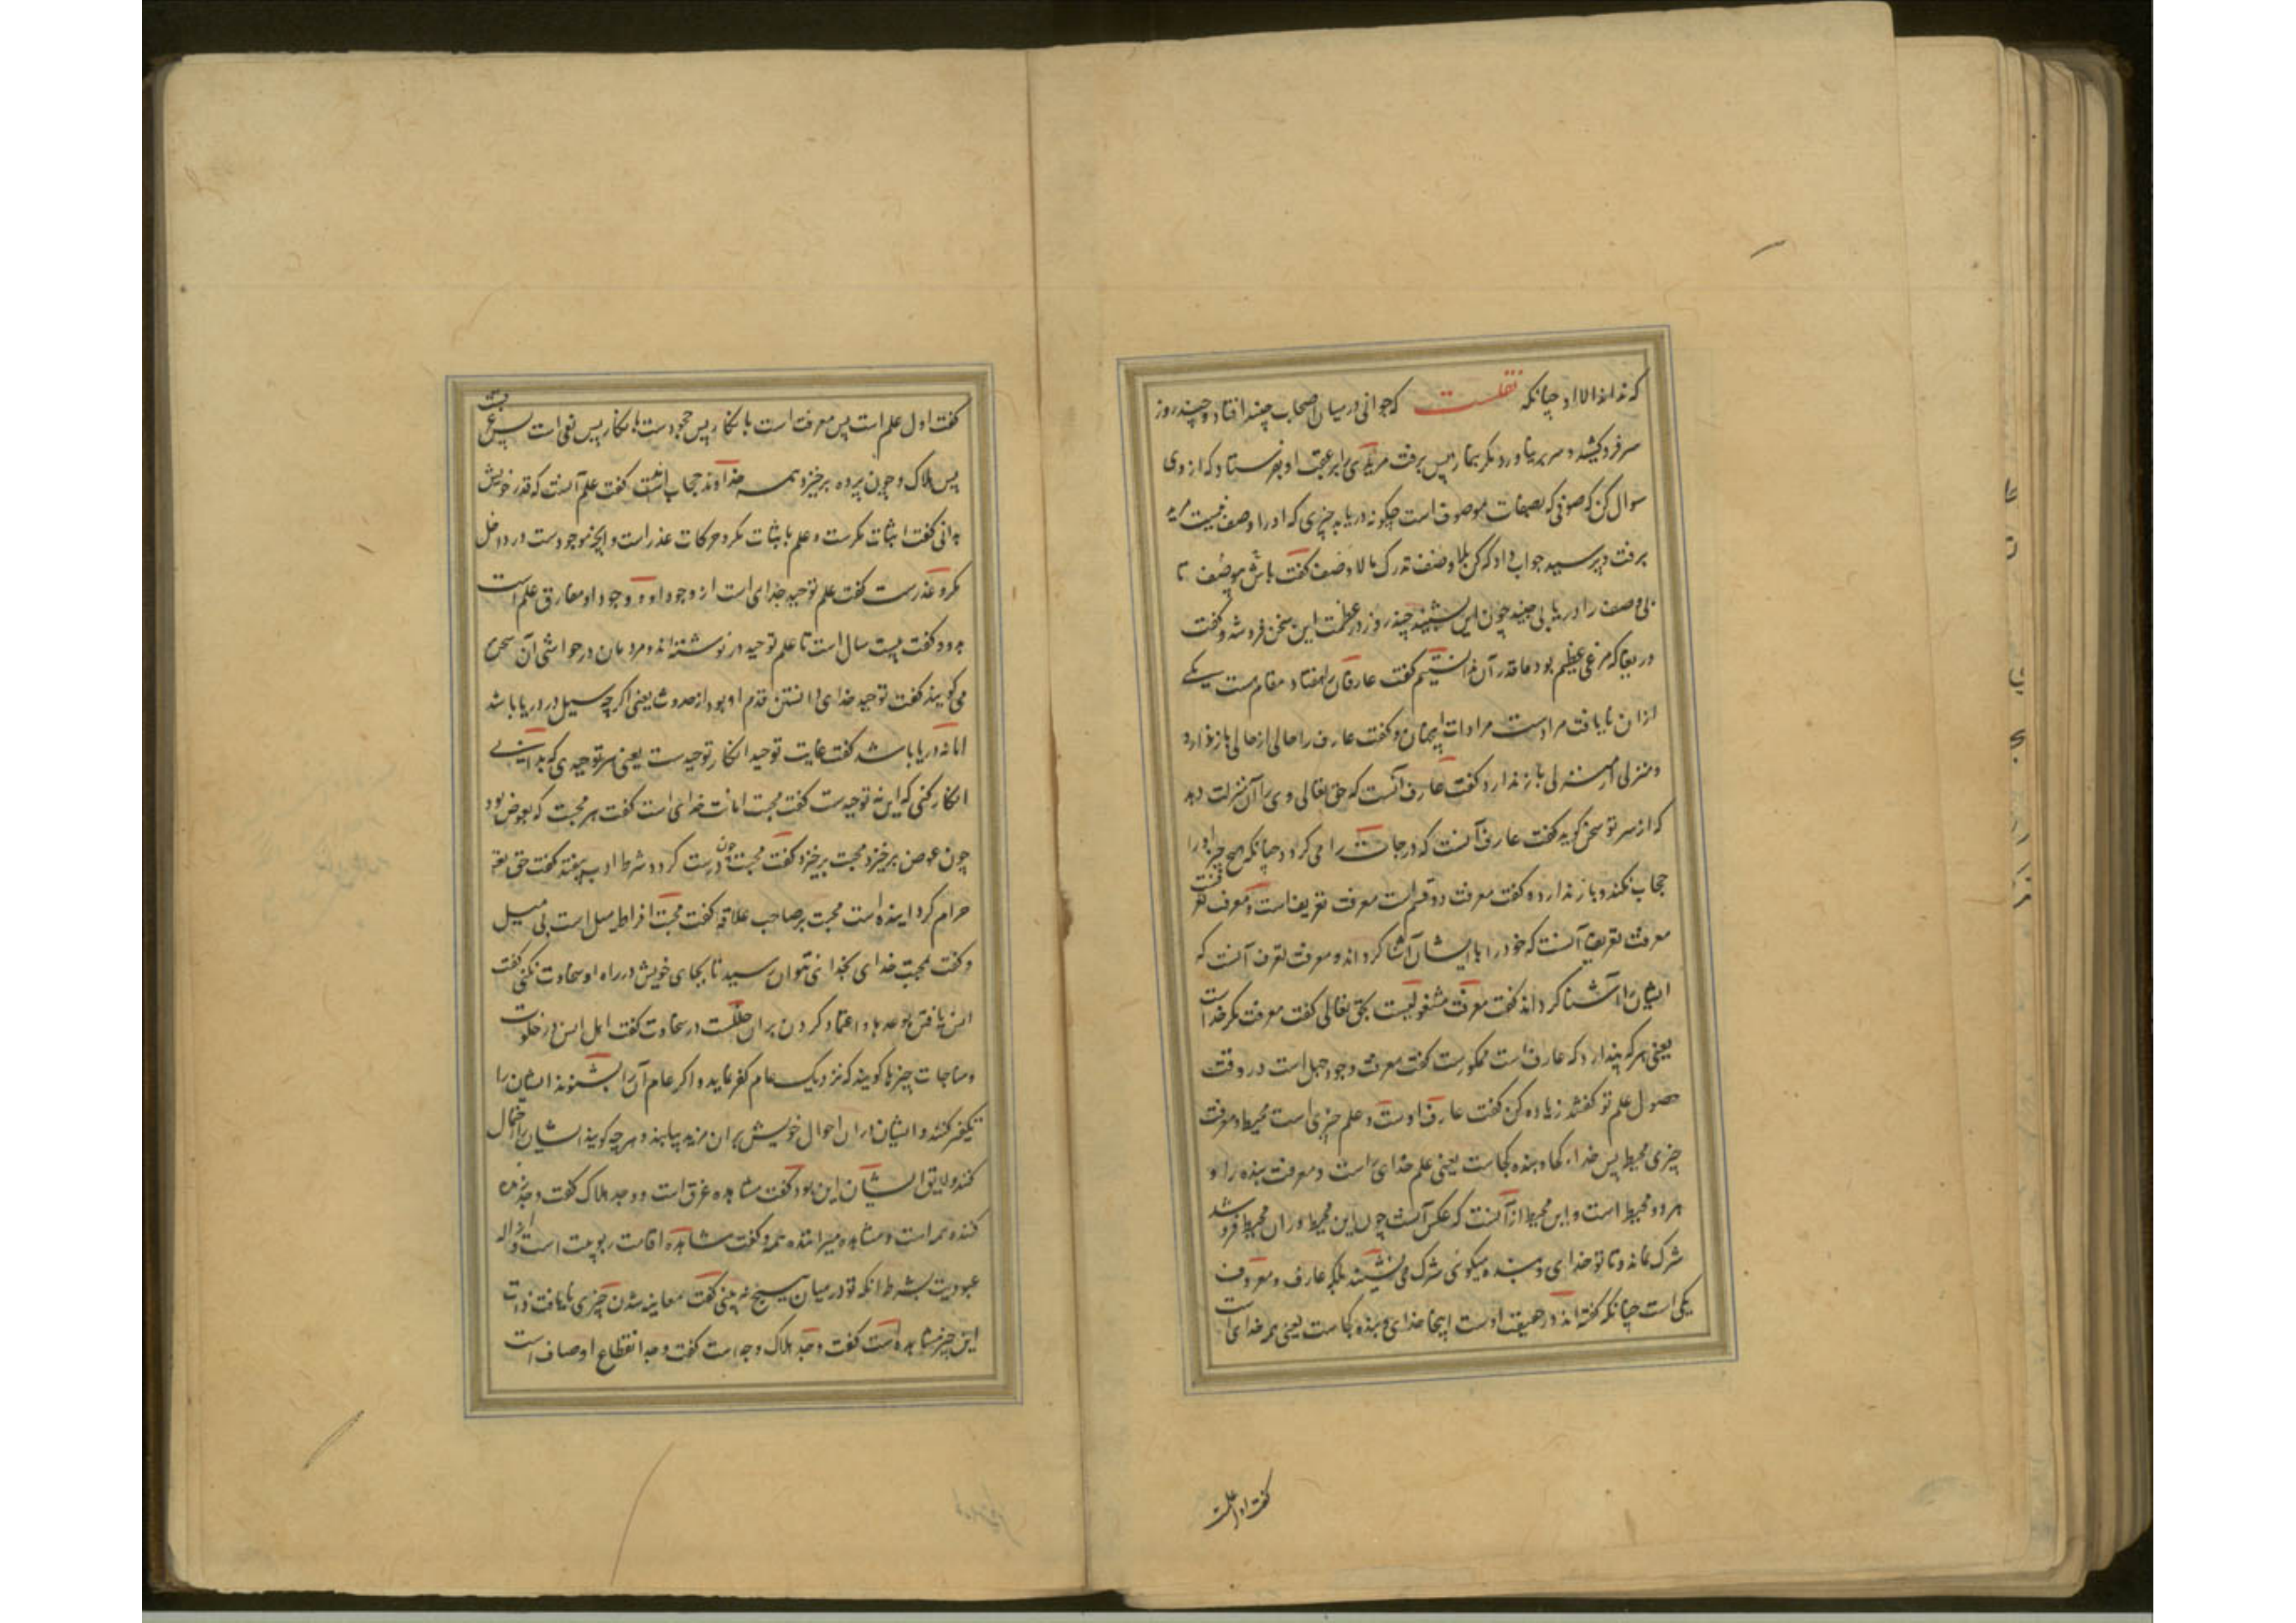 که نداند الا او چنانکه نقلست که جوانی در میان اصحاب جنید افتاد و چند روز
سر فرو کشید و سر بر نیاورد مگر بنماز پس برفت مریدی را بر عقب او بفرستاد که از وی
سوال کن که صوفی که بصفات موصوف است چگونه دریابد چیزی که او را وصف نیست مرید
برفت و پرسید جواب داد که کن بلا وصف تدرک بالا وصف گفت باش بی وصف تا
بی وصف را دریابی جنید چون این بشنید چند روز در عظمت این سخن فرو شد و گفت
دریغا که مرغی عظیم بود ما قدر آن ندانستیم گفت عارفان را هفتاد مقام است یکی
از آن نایافت مرادست مرادات این جهان و گفت عارف را حالی از حالی باز ندارد
و منزلی از منزلی باز ندارد گفت عارف آنست که حق تعالی وی را آن منزلت دهد
که از سر تو سخن گوید گفت عارف آنست که درجات را می گردد چنانکه هیچ چیز او را
حجاب نکند و باز ندارد و گفت معرفت دو قسم است معرفت تعریف است و معرفت تعرف
معرفت تعریف آنست که خود را با ایشان آشنا گرداند و معرفت تعرف آنست که
ایشان را آشنا گرداند گفت معرفت مشغولیست بحق تعالی گفت معرفت مکر خداست
یعنی هر که پندارد که عارف است ممکورست گفت معرفت وجود جهل است در وقت
حصول علم تو گفتند زیاده کن گفت عارف اوست و علم چیزی است محیط و معرفت
چیزی محیط پس خدا کجا و بنده کجاست یعنی علم خدای راست و معرفت بنده را و
هر دو محیط است و این محیط از آنست که عکس آنست چون این محیط در آن محیط فرو شد
شرک نماند و تا تو خدای و بنده میگوئی شرک می نشیند بلکه عارف و معروف
یکی است چنانکه گفته اند در حقیقت اوست اینجا خدای و بنده کجاست یعنی همه خدای است
گفت اول علمست
گفت اول علم است پس معرفت است بانکار پس جحودست بانکار پس نفی است پس غرق
پس هلاک و چون پرده برخیزد همه خداوند حجاب گفت علم آنست که قدر خویش
بدانی گفت اثبات مکرست و علم باثبات مکر و حرکات عذر است و آنچه موجودست در داخل
مکر و عذرست گفت علم توحید جدای است از وجود او و وجود او مفارق علم است
بدو و گفت بیست سال است تا علم توحید در نوشته اند و مردمان در حواشی آن سخن
می گویند گفت توحید خدای دانستن قدم او بود از حدوث یعنی اگر چه سیل در دریا باشد
اما نه دریا باشد گفت غایت توحید انکار توحیدست یعنی هر توحیدی که بدانی
انکار کنی که این نه توحیدست گفت محبت امانت خدای است گفت هر محبت که بعوض بود
چون عوض برخیزد محبت برخیزد گفت محبت چون درست گردد شرط ادب بیفتد گفت حق تعالی
حرام گردانیده است محبت بر صاحب علاقه گفت محبت افراط میل است بی میل
و گفت بمحبت خدای بخدای نتوان رسید تا بجای خویش در راه او سخاوت نکنی گفت
انس یافتن بوعدها و اعتماد کردن بر آن خللست در سخاوت گفت اهل انس در خلوت
و مناجات چیزها گویند که نزدیک عام کفر نماید و اگر عام آن را بشنوند ایشان را
تکفیر کنند و ایشان در آن احوال خویش بر آن مزید یابند و هر چه گویند ایشان را احتمال
کند و لایق ایشان این بود گفت مشاهده غرق است و وجد هلاک گفت وجد زنده
کننده همه است و مشاهده میراننده همه و گفت مشاهده اقامت ربوبیت است و ازاله
عبودیت بشرط آنکه تو در میان هیچ نه بینی گفت معاینه شدن چیزی با یافت ذات
این چیز مشاهده است گفت وجد هلاک وجد است گفت وجد انقطاع اوصاف است